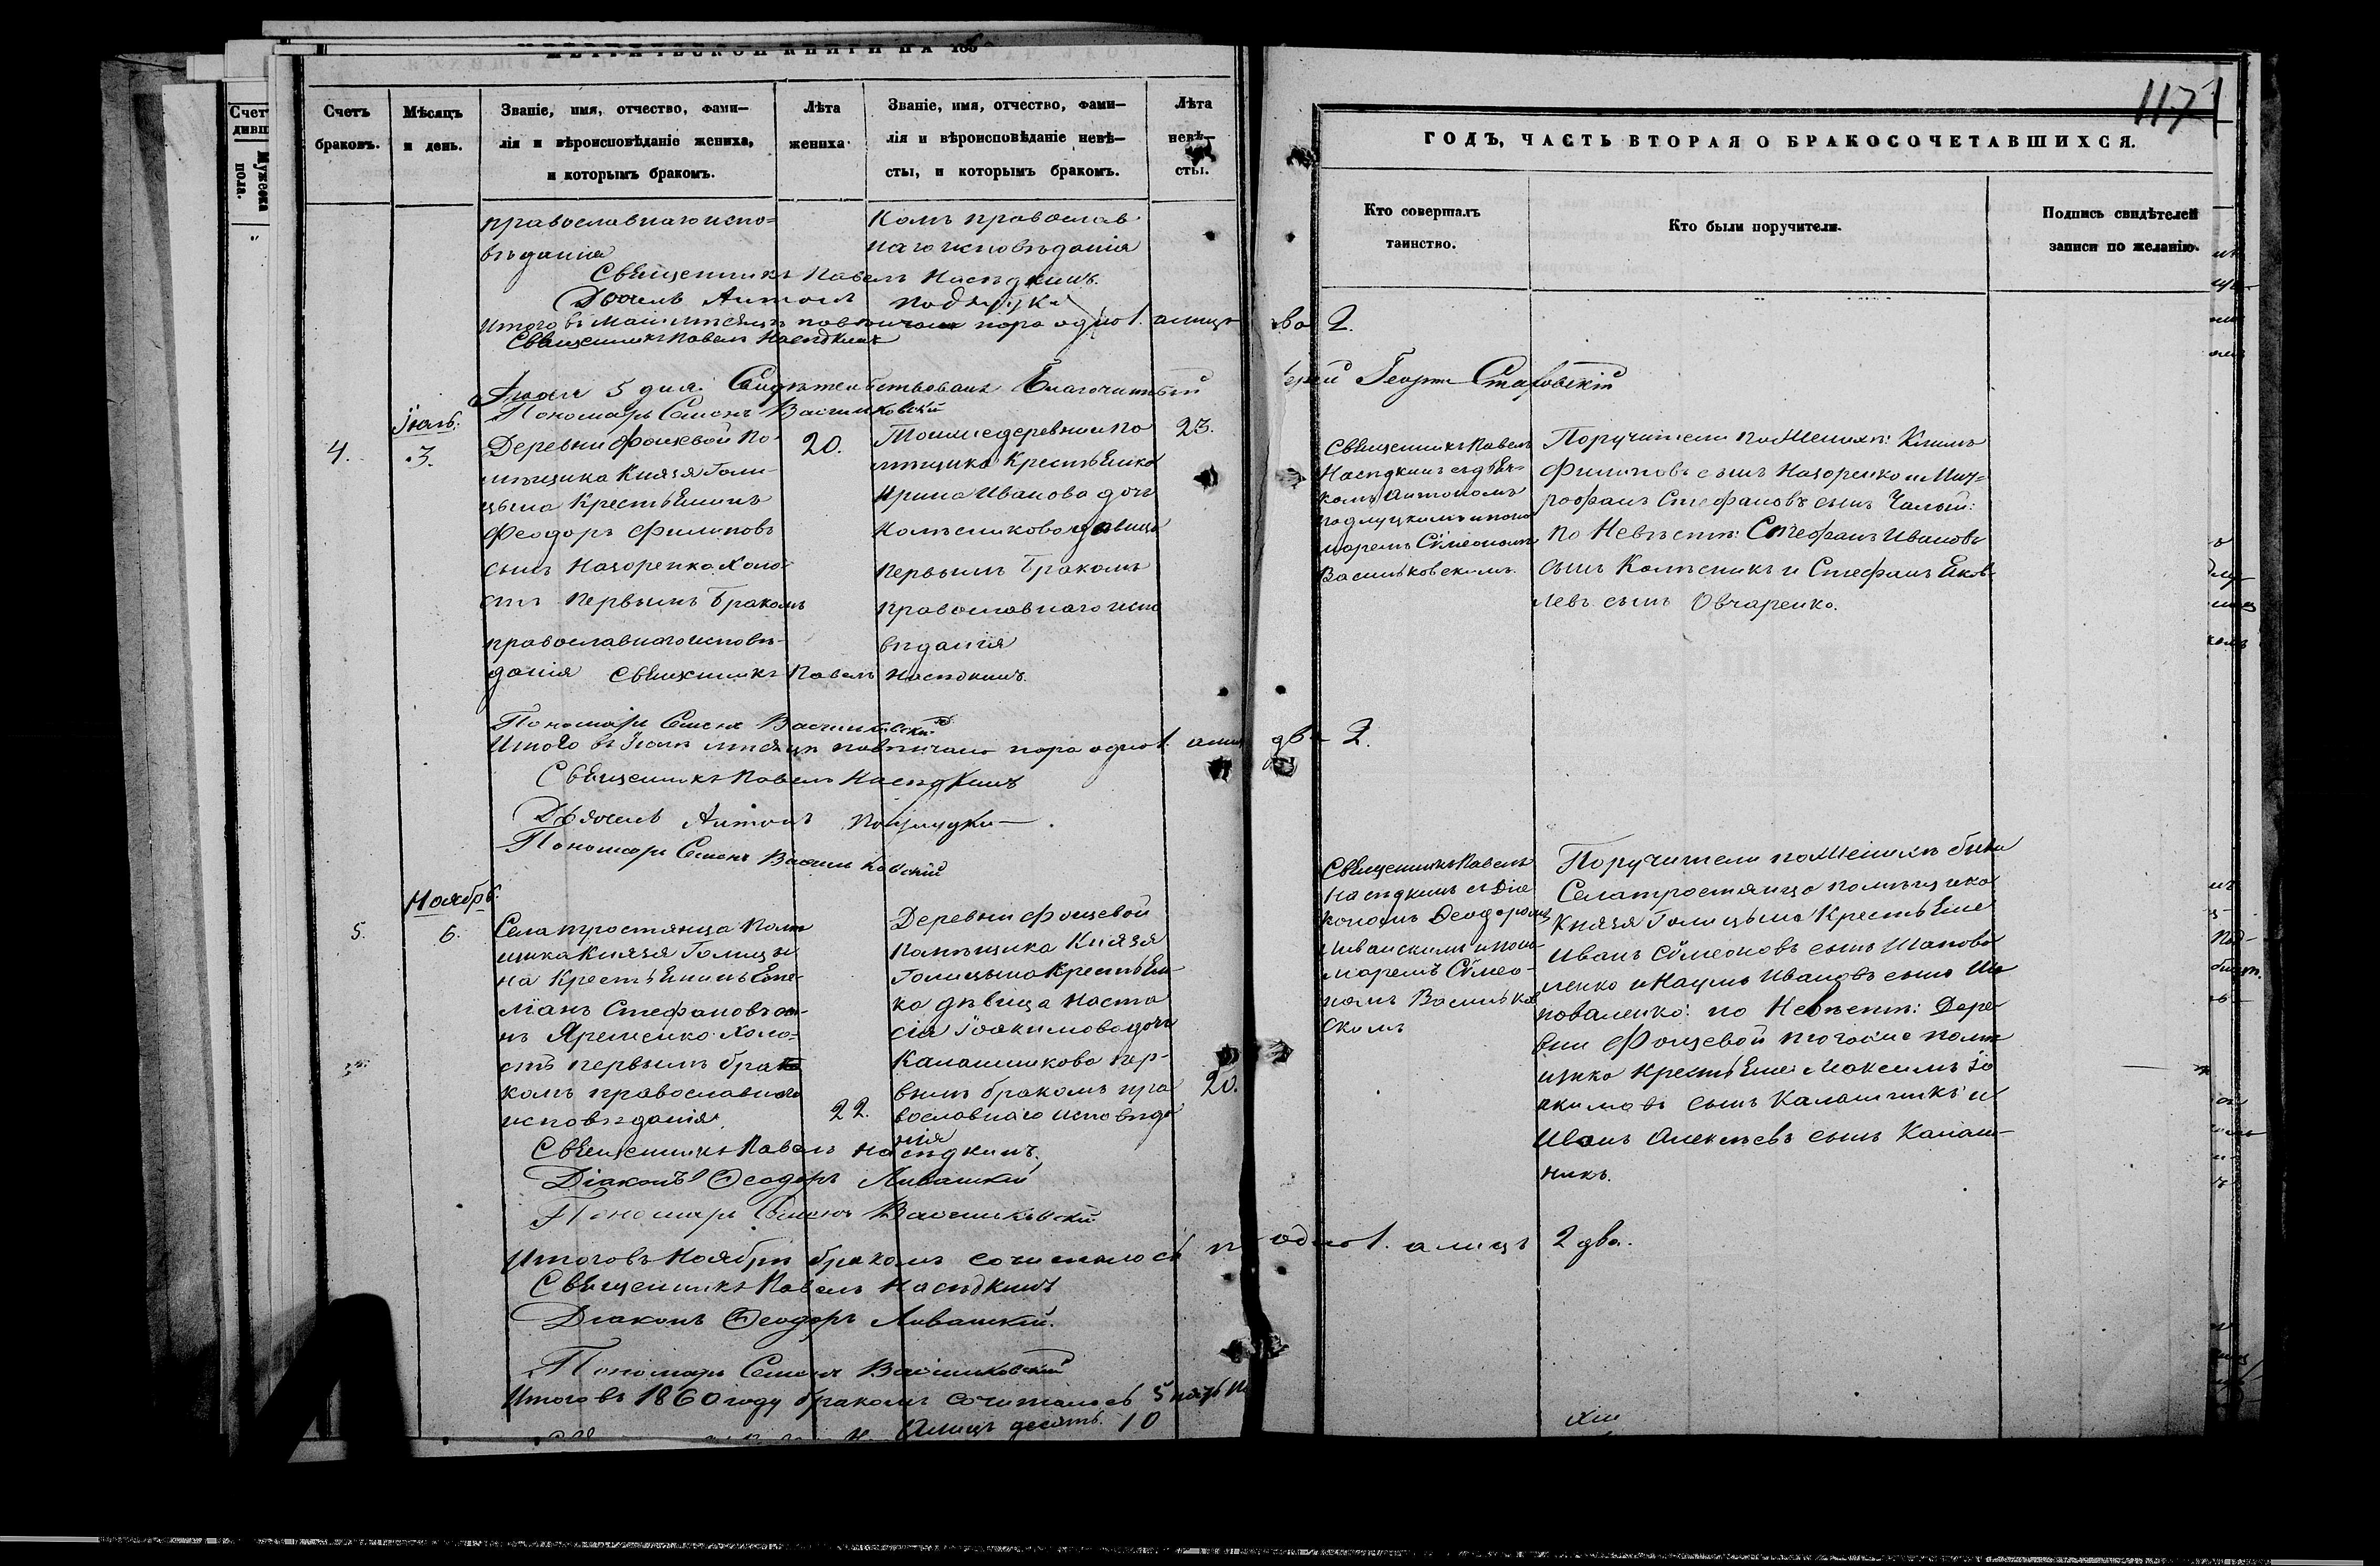 МЕТРИЧЕСКОЙ КНИГИ НА 186
Счетъ браковъ.
Мѣсяцъ и день.
Званіе, имя, отчество, фами-
лія и вѣроисповѣданіе жениха,
и которымъ бракомъ.
Лѣта жениха
Званіе, имя, отчество, фами-
лія и вѣроисповѣданіе невѣ-
сты, и которымъ бракомъ.
Лѣта
невѣ-
сты.
православнаго испо=
вѣданія
комъ православ
наго исповѣданія
Священникъ Павелъ Насѣдкинъ.
Дьячекъ Антонъ
Итого въ Маи мѣсяцѣ повѣнчано пара одна 1. а лицъ
Священникъ Павелъ Насѣдкинъ
5 дня. Свидѣтельствовалъ Благочинный
Пономарь Семенъ Васильковскій
Іюль.
4.
3.
Деревни Фощевой по-
мѣщика Князя Голи-
цына Крестьянинъ
Феодоръ Филиповъ
сынъ Назаренко холо-
стъ первымъ бракомъ
православнаго исповѣ-
данія
20.
Тоижедеревни по
мѣщика Крестьянка
Ирина Иванова дочь
Колѣсникова дѣвица
первымъ бракомъ
православнаго испо
вѣданія
23.
Священникъ Павелъ Насѣдкинъ.
Пономарь Семенъ Васильковскій
Итого въ Іюлѣ мѣсяцѣ повѣнчано пара одна 1. а лицъ
Священникъ Павелъ Насѣдкинъ
Дьячекъ Антонъ
Пономарь Семенъ Васильковскій
Ноябрь.
5.
6.
Села тростянца помѣ
щика Князя Голицы
на Крестьянинъ Еме-
ліанъ Стефановъ сы-
нъ Яременко холо-
стъ первымъ бра
комъ православнаго
исповѣданія.
22.
Деревни Фощевой
помѣщика Князя
Голицына Крестьян-
ка дѣвица Наста
сія Іоакимова дочь
Калашникова пер-
вымъ бракомъ пра
вославнаго исповѣда
нія
20.
Священникъ Павелъ Насѣдкинъ.
Діаконъ Феодоръ Ливанскій
Пономарь Семенъ Васильковскій
Итого въ Ноябрѣ бракомъ сочиталось
Священникъ Павелъ Насѣдкинъ
Діаконъ Феодоръ Ливанскій.
Пономарь Семенъ Васильковскій
Итого въ 1860 году бракомъ сочиталось 5 пять
А лицъ десять. 10
117
ГОДЪ, ЧАСТЬ ВТОРАЯ О БРАКОСОЧЕТАВШИХСЯ.
Кто совершалъ
таинство.
Кто были поручители.
Подпись свидѣтелей
записи по желанію.
два 2.
Іерей Георгій
Священникъ Павелъ
Насѣдкинъ съ дьяч-
комъ Антономъ
и поно
маремъ Сѵмеономъ
Васильковскимъ.
Поручители по Женихѣ: Климъ
Филиповъ сынъ Назаренко и Мит=
рофанъ Стефановъ сынъ Чалый:
по Невѣстѣ: Стефанъ Ивановъ
сынъ Колѣсникъ и Стефанъ Яков-
левъ сынъ Овчаренко.
два 2.
Священникъ Павелъ
Насѣдкинъ съ Діа
кономъ Феодоромъ
Ливанскимъ и поно-
маремъ Сѵмео-
номъ Васильков
скимъ
Поручители по Женихѣ были
Села тростянца помѣщика
Князя Голицына Крестьяне
Иванъ Сѵмеоновъ сынъ Шапова
ленко и Наумъ Ивановъ сынъ Ша
поваленко: по Невѣстѣ: Дере-
вни Фощевой того же помѣ
щика Крестьяне Максимъ Іо
акимовъ сынъ Калашникъ и
Иванъ Алексѣевъ сынъ Калаш-
никъ.
одна 1. а лицъ 2 два.